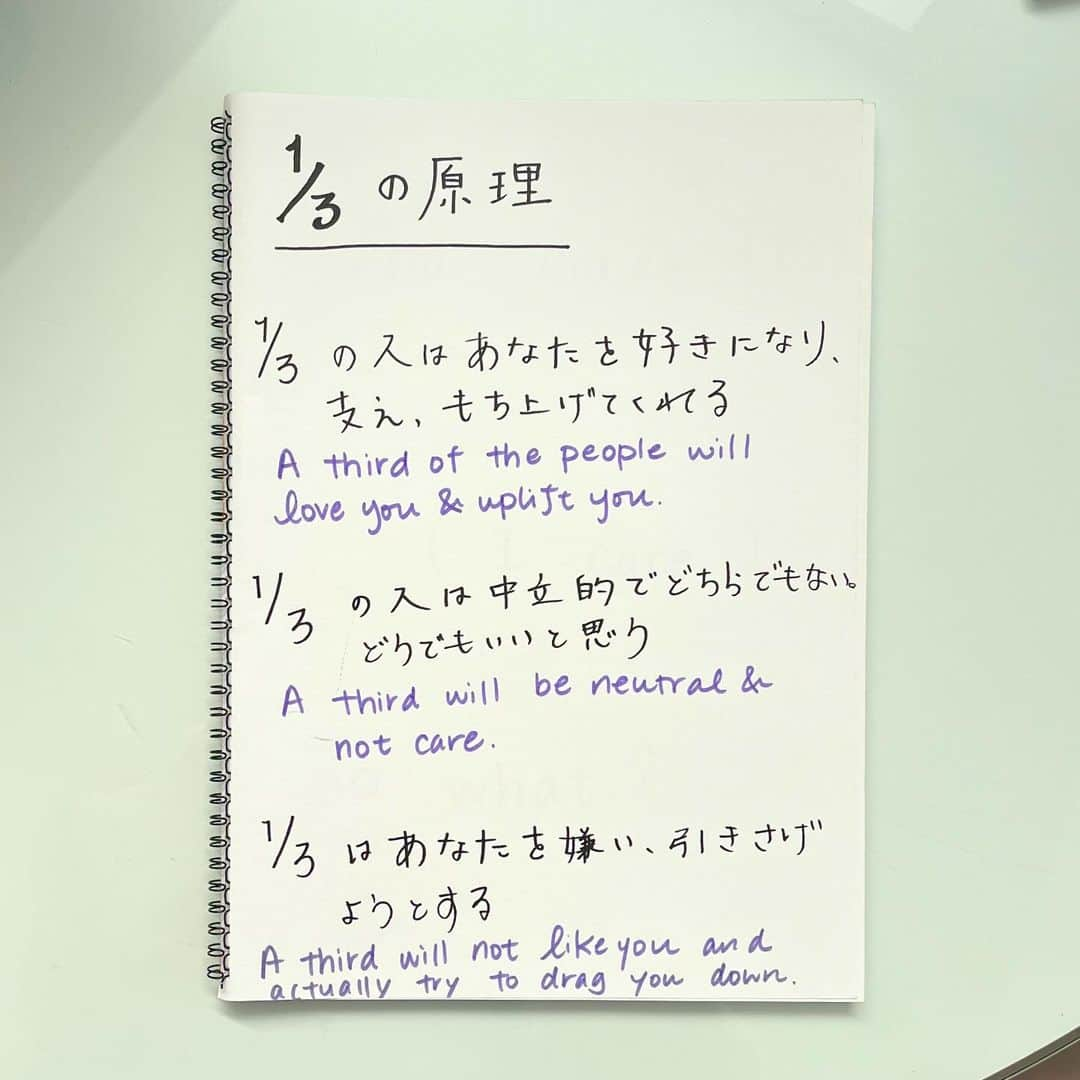 1/3 の原理
1/3 の人はあなたを好きになり、
支え、もち上げてくれる
A third of the people will
love you & uplift you.
1/3 の人は中立的でどちらでもない。
どうでもいいと思う
A third will be neutral &
not care.
1/3 はあなたを嫌い、引きさげ
ようとする
A third will not like you and
actually try to drag you down.